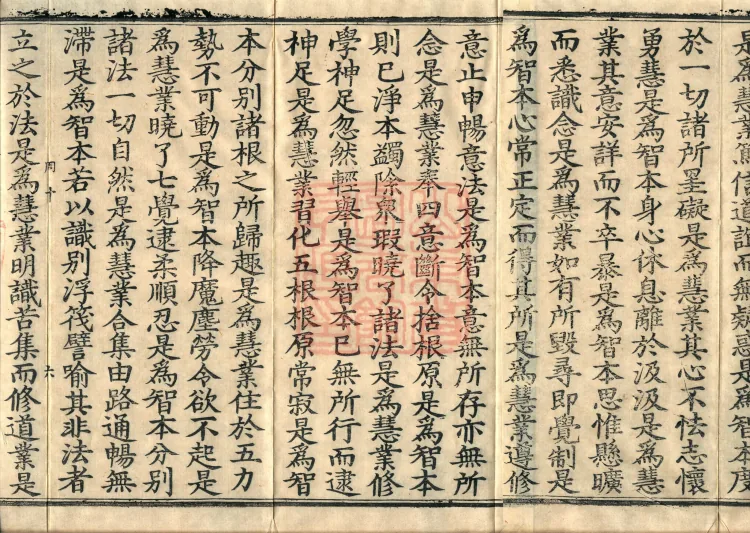 是為慧業篤信道誼而無疑惑是為智本度
於一切諸所罣礙是為慧業其心不怯志懷
勇慧是為智本身心休息離於汲汲是為慧
業其意安詳而不卒暴是為智本思惟懸曠
而悉識念是為慧業如有所毀尋即覺制是
為智本心常正定而得其所是為慧業遵修
意止申暢意法是為智本意無所存亦無所
念是為慧業奉四意斷令捨根原是為智本
則已淨本蠲除衆瑕曉了諸法是為慧業修
學神足忽然輕舉是為智本已無所行而逮
神足是為慧業習化五根根原常寂是為智
本分別諸根之所歸趣是為慧業住於五力
勢不可動是為智本降魔塵勞令欲不起是
為慧業曉了七覺逮柔順忍是為智本分別
諸法一切自然是為慧業合集由路通暢無
滯是為智本若以識別浮筏譬喻其非法者
立之於法是為慧業明識苦集而修道業是